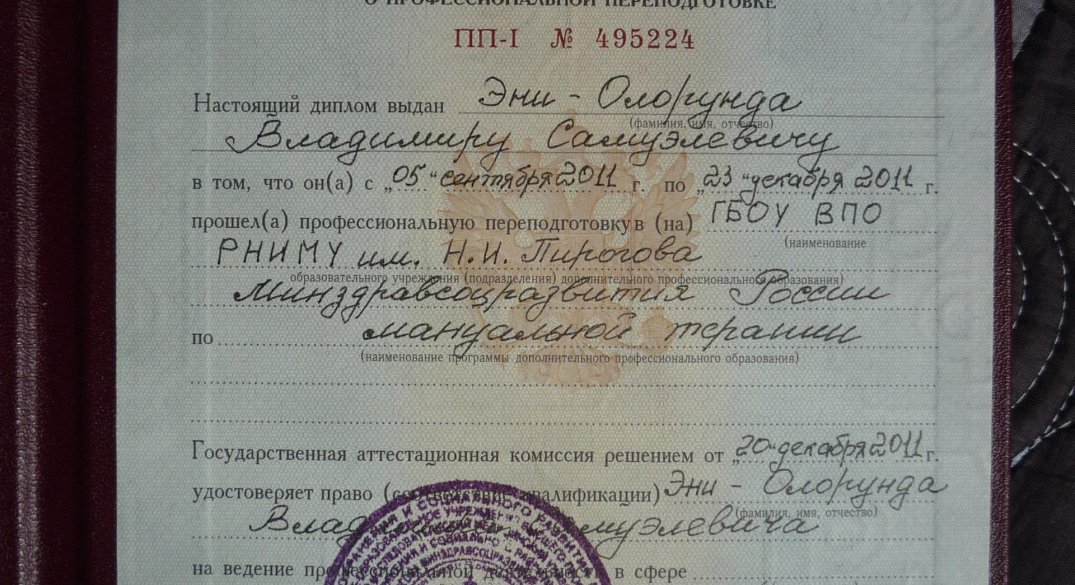 О ПРОФЕССИОНАЛЬНОЙ ПЕРЕПОДГОТОВКЕ
ПП-I № 495224
Настоящий диплом выдан Эни - Олорунда
(фамилия, имя, отчество)
Владимиру Самуэлевичу
в том, что он(а) с „05“ сентября 2011 г. по „23“ декабря 2011 г.
прошел(а) профессиональную переподготовку в (на) ГБОУ ВПО
(наименование
РНИМУ им. Н.И. Пирогова
образовательного учреждения (подразделения) дополнительного профессионального образования)
Минздравсоцразвития России
по мануальной терапии
(наименование программы дополнительного профессионального образования)
Государственная аттестационная комиссия решением от „20“ декабря 2011 г.
удостоверяет право (соответствие квалификации) Эни - Олорунда
(фамилия, имя, отчество)
Владимира Самуэлевича
на ведение профессиональной деятельности в сфере